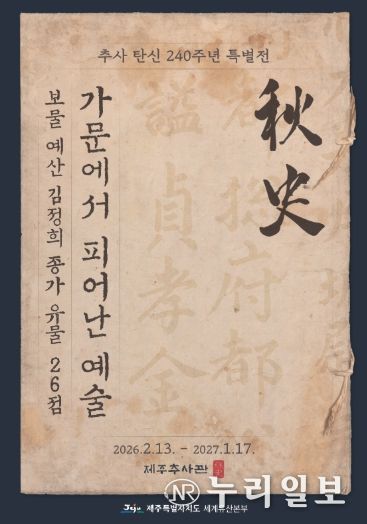 추사 탄신 240주년 특별전
秋史
가문에서 피어난 예술
보물 예산 김정희 종가 유물 26점
謚貞孝金
府都
2026.2.13. - 2027.1.17.
제주추사관
Jeju 제주특별자치도 세계유산본부
NR 누리일보